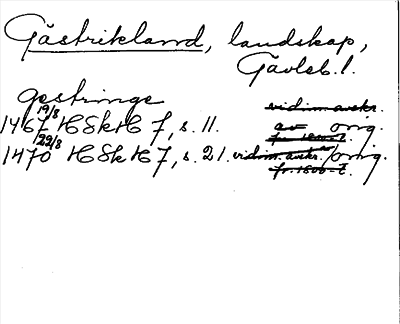 Gästrikland, landskap,
Gävleb. l.
gestringe
1467 19/8 HSkH 7, s. 11. vidim. avskr. av orig. fr. 1500-t.
1470 22/8 HSkH 7, s. 21. vidim. avskr. av orig. fr. 1500-t.